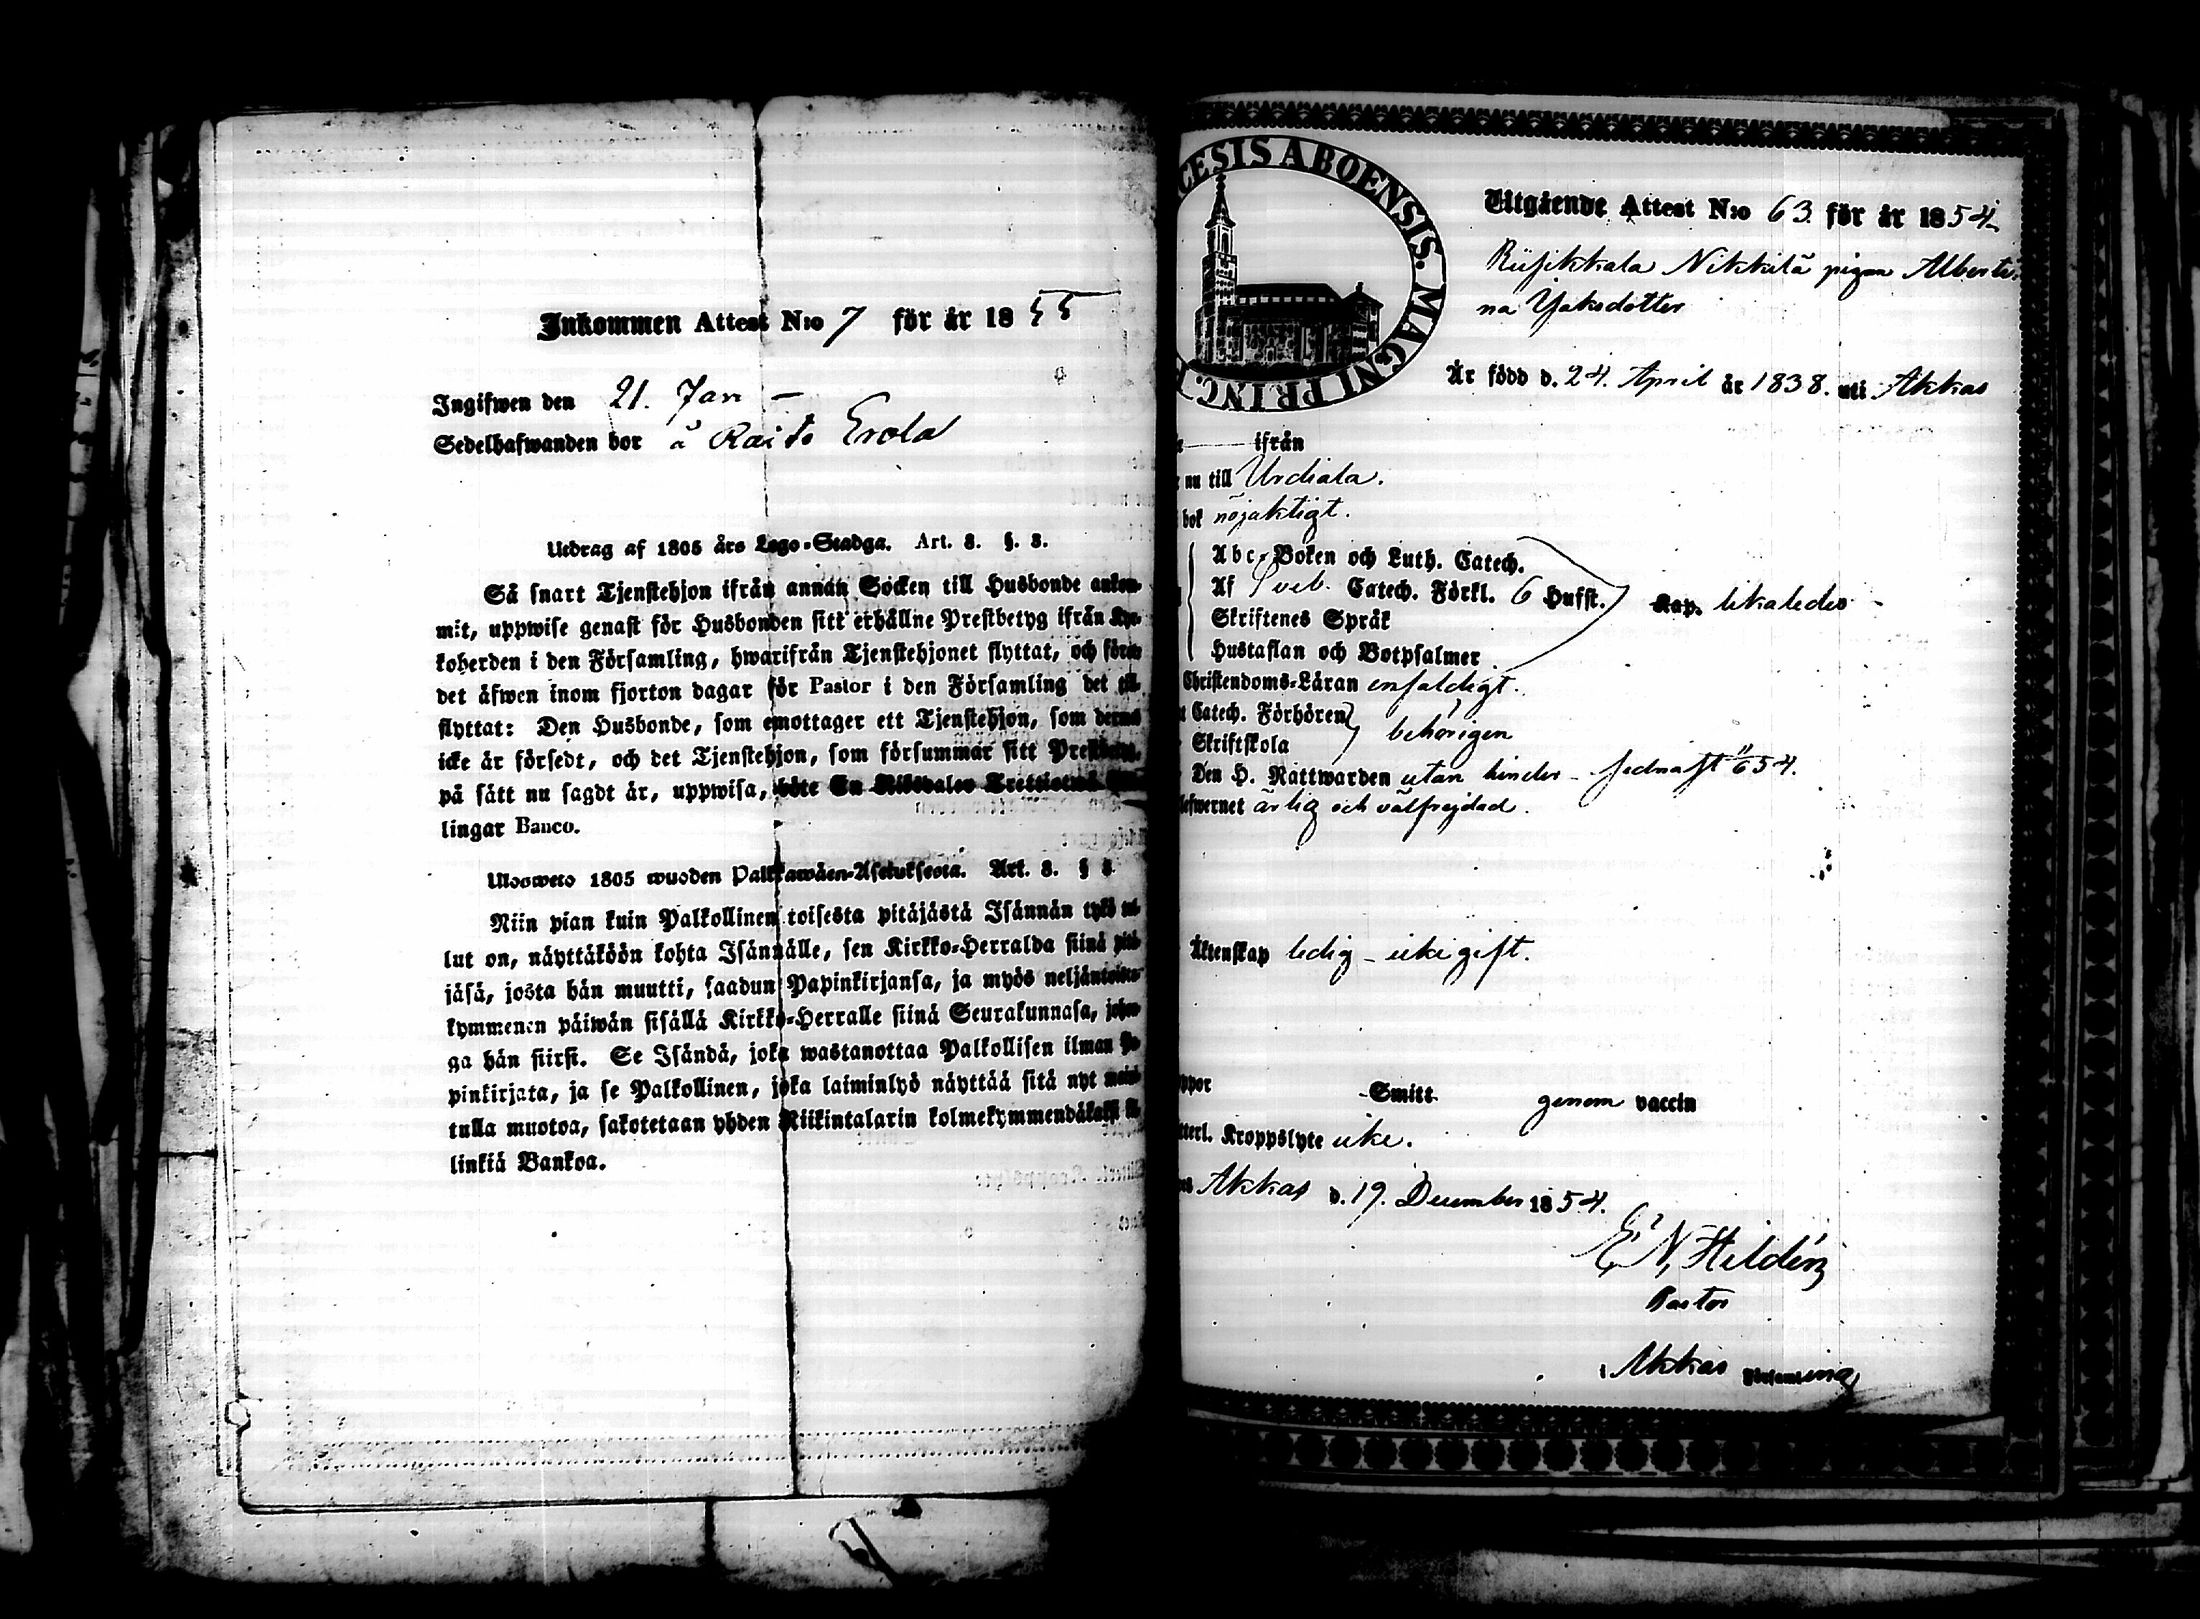 Inkommen Attest N:o 7 för år 1855
Ingifwen den 21. Jan –
Sedelhafwanden bor å Raito Erola
Utdrag af 1805 års Lego-Stadga. Art. 8. §. 3.
Så snart Tjenstehjon ifrån annan Socken till Husbonde ankom-
mit, uppwise genast för Husbonden sitt erhållne Prestbetyg ifrån Kyr-
koherden i den Församling, hwarifrån Tjenstehjonet flyttat, och förete
det äfwen inom fjorton dagar för Pastor i den Församling det till-
flyttat: Den Husbonde, som emottager ett Tjenstehjon, som dermed
icke är försedt, och det Tjenstehjon, som försummar sitt Prestbetyg,
på sätt nu sagdt är, uppwisa, böte En Riksdaler Trettiotwå
lingar Banco.
Ulosweto 1805 wuoden Palkkawäen-Asetuksesta. Art. 8. § 3
Niin pian kuin Palkollinen toisesta pitäjästä Isännän tykö tul-
lut on, näyttäköön kohta Isännälle, sen Kirkko-Herralda siinä pitä-
jäsä, josta hän muutti, saadun Papinkirjansa, ja myös neljäntoista-
kymmenen päiwän sisällä Kirkko-Herralle siinä Seurakunnasa, johon-
ga hän siirsi. Se Isändä, joka wastanottaa Palkollisen ilman Pa-
pinkirjata, ja se Palkollinen, joka laiminlyö näyttää sitä nyt maini-
tulla muotoa, sakotetaan yhden Riikintalarin kolmekymmendäkaksi kil-
linkiä Bankoa.
CESIS ABOENSIS. MAGNI PRINC.
Utgående Attest N:o 63. för år 1854.
Riisikkala Nikkilä pigan Alberti-
na Jaksdotter
Är född d. 24. April år 1838. uti Akkas
ifrån
nu till Urdiala.
bok nöjaktigt.
Abc-Boken och Luth. Catech.
Af Sveb. Catech. Förkl. 6 Hufst. Kap. likaledes –
Skriftenes Språk
Hustaflan och Botpsalmer
Christendoms-Läran enfaldigt.
Catech. Förhören behörigen
Skriftskola
Den H. Nattwarden utan hinder – sednast 54.
lefwernet ärlig och välfrejdad.
Äktenskap ledig – icke gift.
ppor Smitt genom vaccin
tterl. Kroppslyte icke.
Akkas d. 19. December 1854.
E. N. Hildén
Pastor
i Akkas Församling